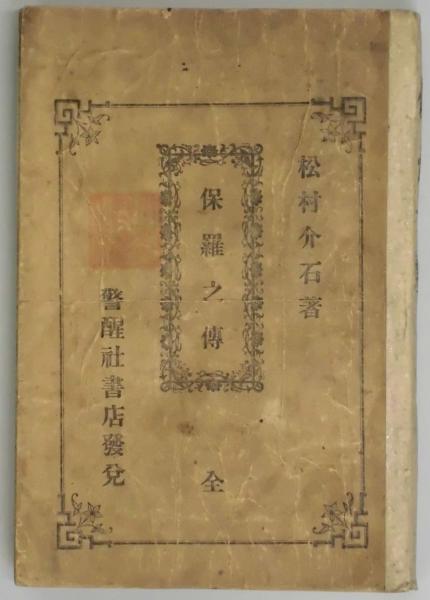 松村介石著
保羅之傳
全
警醒社書店發兌